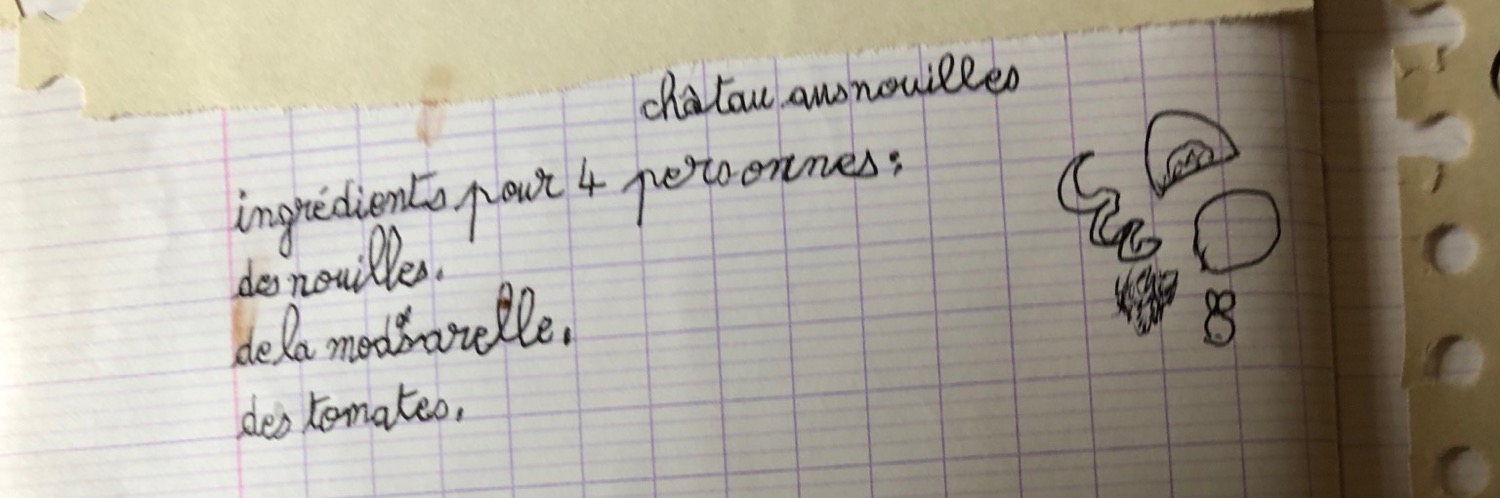 châtau ausnouilles
ingrédients pour 4 personnes:
des nouilles.
de la modsarelle.
des tomates.